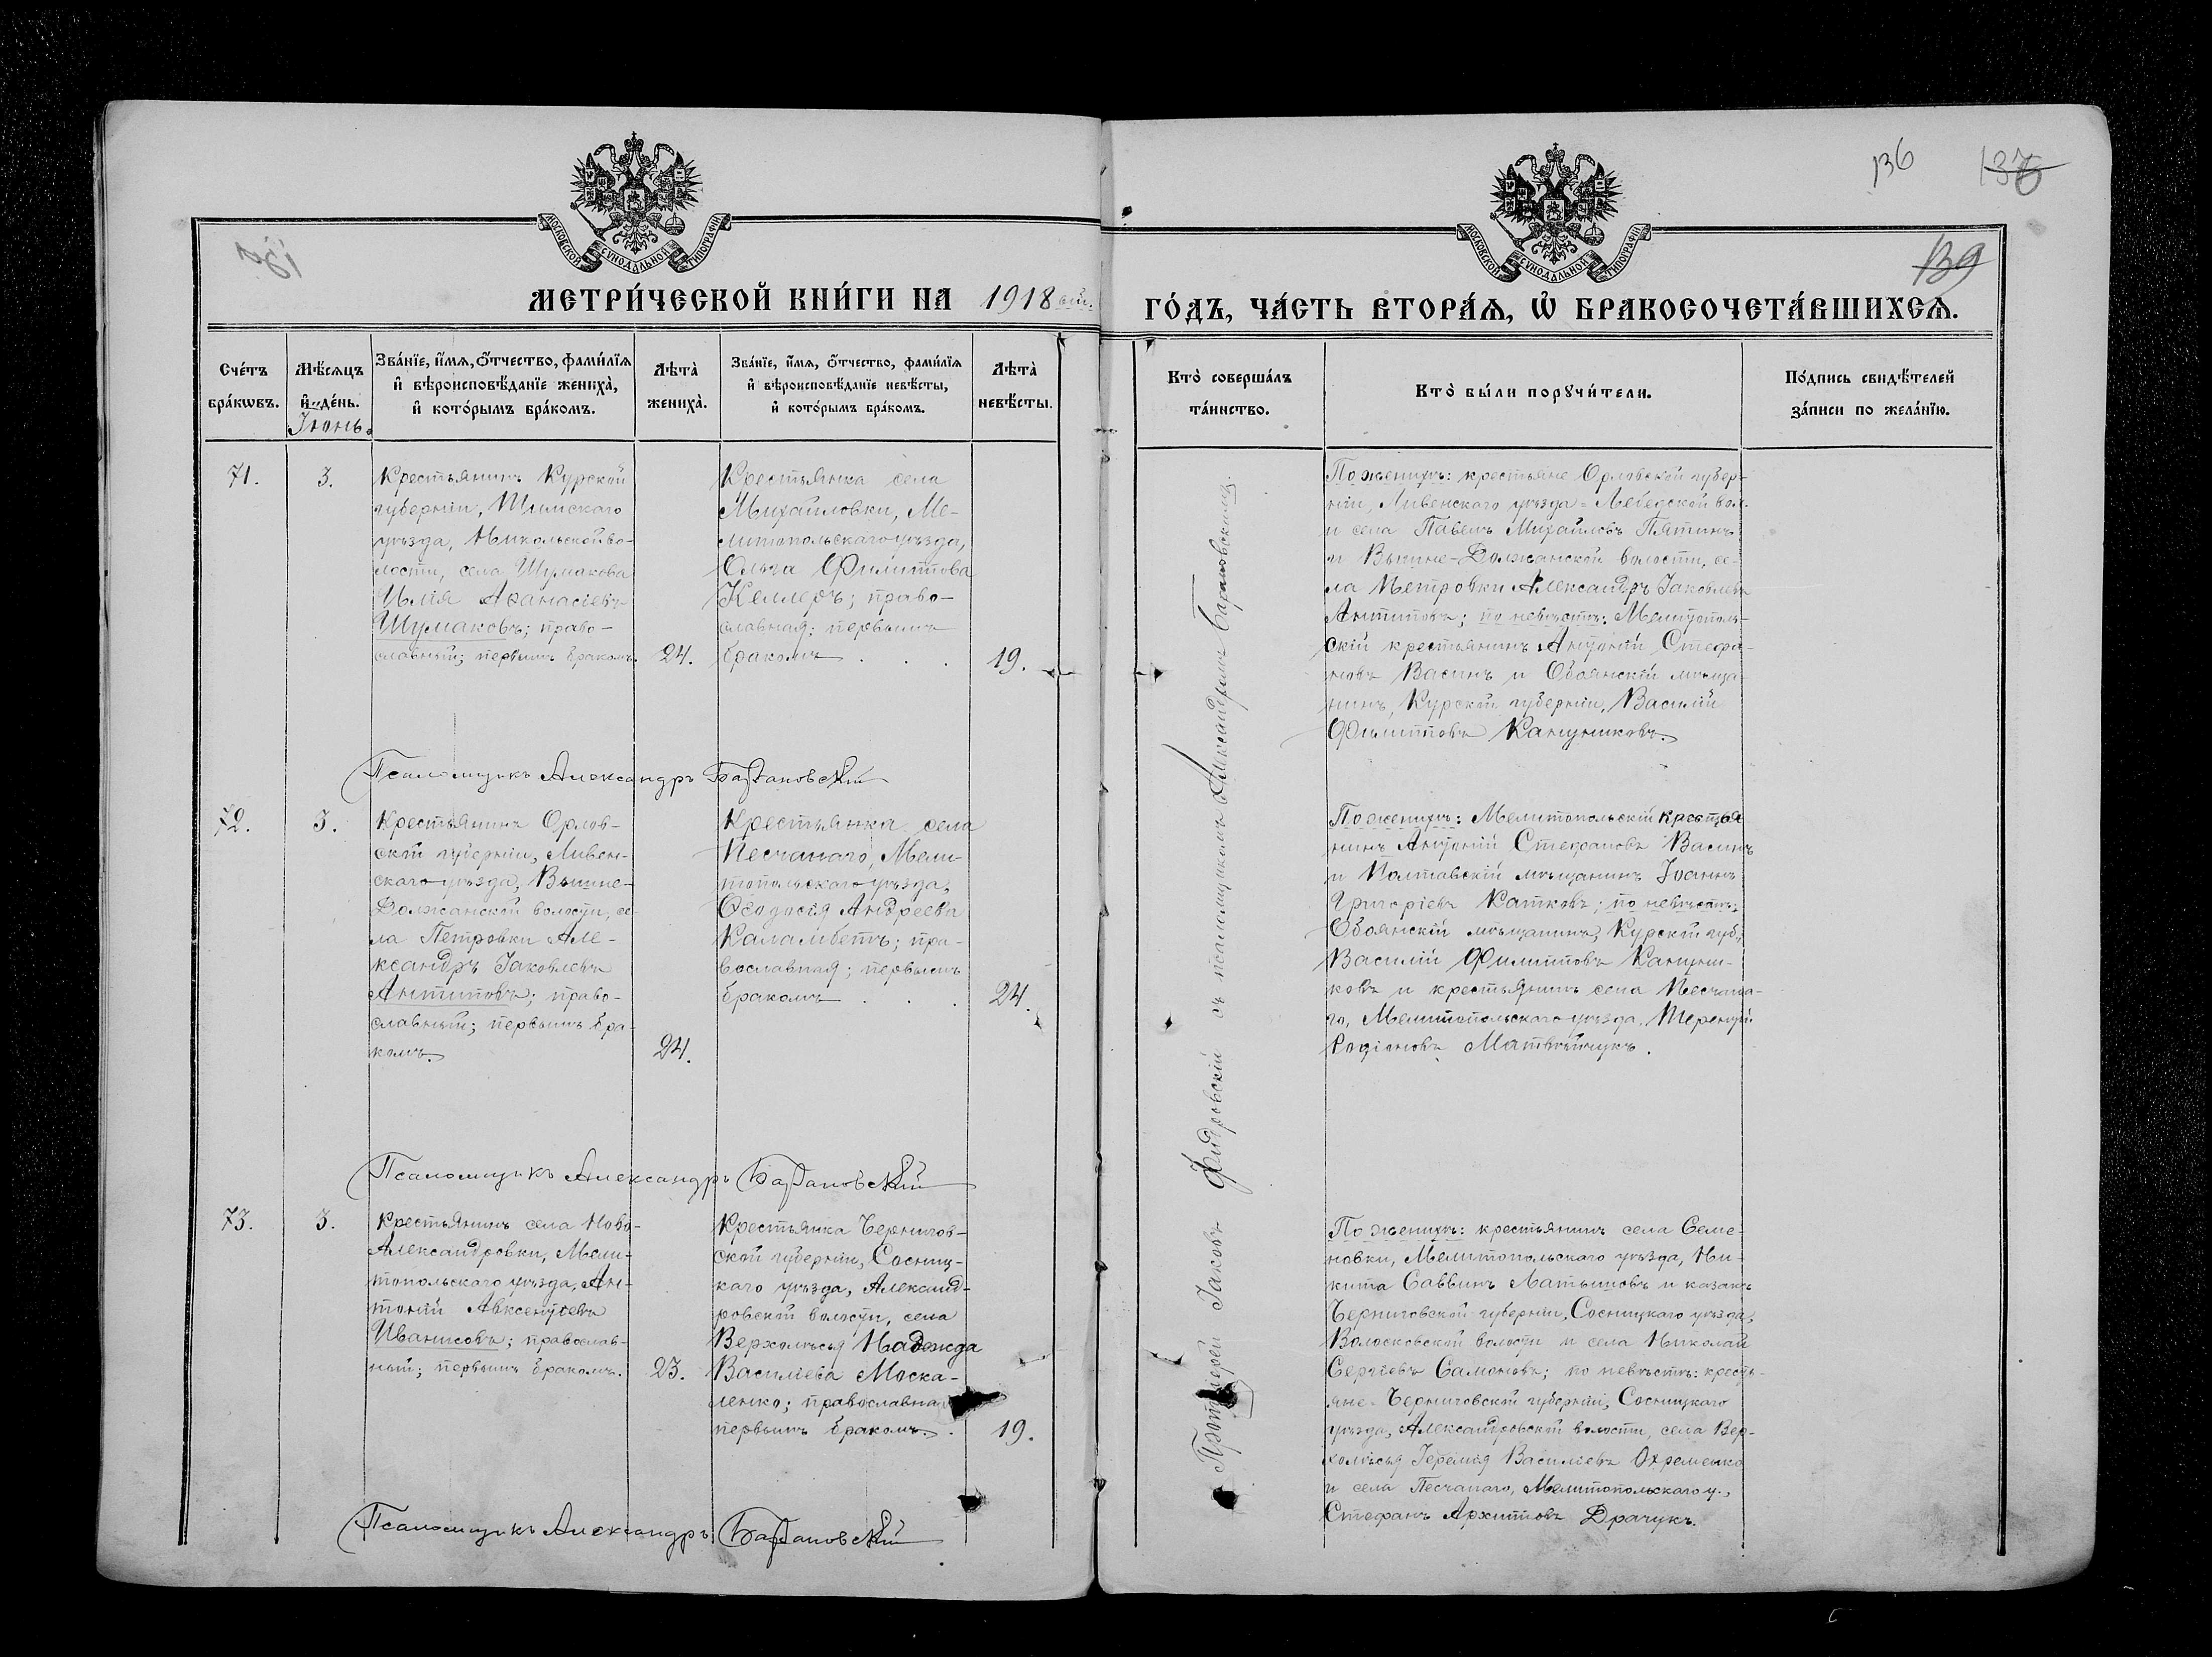 136
139
МОСКОВСКОЙ СѴНОДАЛЬНОЙ ТИПОГРАФІИ
МОСКОВСКОЙ СѴНОДАЛЬНОЙ ТИПОГРАФІИ
МЕТРИ́ЧЕСКОЙ КНИ́ГИ НА 1918
ГО́ДЪ, ЧА́СТЬ ВТОРА́Ѧ, Ѽ БРАКОСОЧЕТА́ВШИХСѦ.
Сче́тъ
бра́кѡвъ.
Мѣ́сѧцъ
и҆ де́нь.
Іюнь.
Зва́нїе, и҆́мѧ, ѻ҆́тчество, фами́лїѧ
и҆ вѣроисповѣ́данїе жениха̀,
и҆ кото́рымъ бра́комъ.
Лѣ́та̀
жениха̀.
Зва́нїе, и҆́мѧ, ѻ҆́тчество, фами́лїѧ
и҆ вѣроисповѣ́данїе невѣ́сты,
и҆ кото́рымъ бра́комъ.
Лѣ́та̀
невѣ́сты.
Кто̀ соверша́лъ
та́инство.
Кто̀ бы́ли порꙋчи́тели.
По́дпись свидѣ́телей
за́писи по жела́нїю.
71.
3.
Крестьянинъ Курской
губерніи, Тимскаго
уѣзда, Никольской во-
лости, села Шумакова
Илія Аѳанасіевъ
Шумаковъ; право-
славный; первымъ бракомъ.
24.
Крестьянка села
Михайловки, Ме-
литопольскаго уѣзда,
Ольга Филиппова
Келлеръ; право-
славная; первымъ
бракомъ . . .
19.
По женихѣ: крестьяне Орловской губер-
ніи, Ливенскаго уѣзда = Лебедской вол.
и села Павелъ Михайловъ Пятинъ
и Вышне-Должанской волости, се-
ла Петровки Александръ Іаковлевъ
Антиповъ; по невѣстѣ: Мелитополь-
скій крестьянинъ Антоній Стефа-
новъ Васинъ и Обоянскій мѣща-
нинъ, Курской губерніи, Василій
Филипповъ Канунниковъ.
Псаломщикъ Александръ Барановскій
72.
3.
Крестьянинъ Орлов-
ской губерніи, Ливен-
скаго уѣзда, Вышне-
Должанской волости, се-
ла Петровки Але-
ксандръ Іаковлевъ
Антиповъ; право-
славный; первымъ бра-
комъ.
24.
Крестьянка села
Песчанаго, Мели-
топольскаго уѣзда,
Ѳеодосія Андреева
Каламбетъ; пра-
вославная; первымъ
бракомъ . . .
24.
По женихѣ: Мелитопольскій крестья
нинъ Антоній Стефановъ Васинъ
и Полтавскій мѣщанинъ Іоаннъ
Григоріевъ Катковъ; по невѣстѣ:
Обоянскій мѣщанинъ, Курской губ.,
Василій Филипповъ Канунни-
ковъ и крестьянинъ села Песчана-
го, Мелитопольскаго уѣзда, Терентій
Родіоновъ Матвѣйчукъ.
Псаломщикъ Александръ Барановскій
73.
3.
Крестьянинъ села Ново-
Александровки, Мели-
топольскаго уѣзда, Ан-
тоній Авксентіевъ
Иванисовъ; православ-
ный; первымъ бракомъ.
23.
Крестьянка Чернигов-
ской губерніи, Сосниц-
каго уѣзда, Александ-
ровской волости, села
Верхолѣсья Надежда
Василіева Моска-
ленко; православна
первымъ бракомъ.
19.
По женихѣ: крестьянинъ села Семе-
новки, Мелитопольскаго уѣзда, Ни-
кита Саввинъ Латышовъ и казакъ
Черниговской губерніи, Сосницкаго уѣзда,
Волосковской волости и села Николай
Сергіевъ Самоновъ; по невѣстѣ: кресть-
яне - Черниговской губерніи, Сосницкаго
уѣзда, Александровской волости, села Вер-
холѣсья Іеремія Василіевъ Охременко
и села Песчанаго, Мелитопольскаго у.,
Стефанъ Архиповъ Драчукъ.
Псаломщикъ Александръ Барановскій
Протоіерей Іаковъ Фидровскій съ псаломщикомъ Александромъ Барановскимъ.